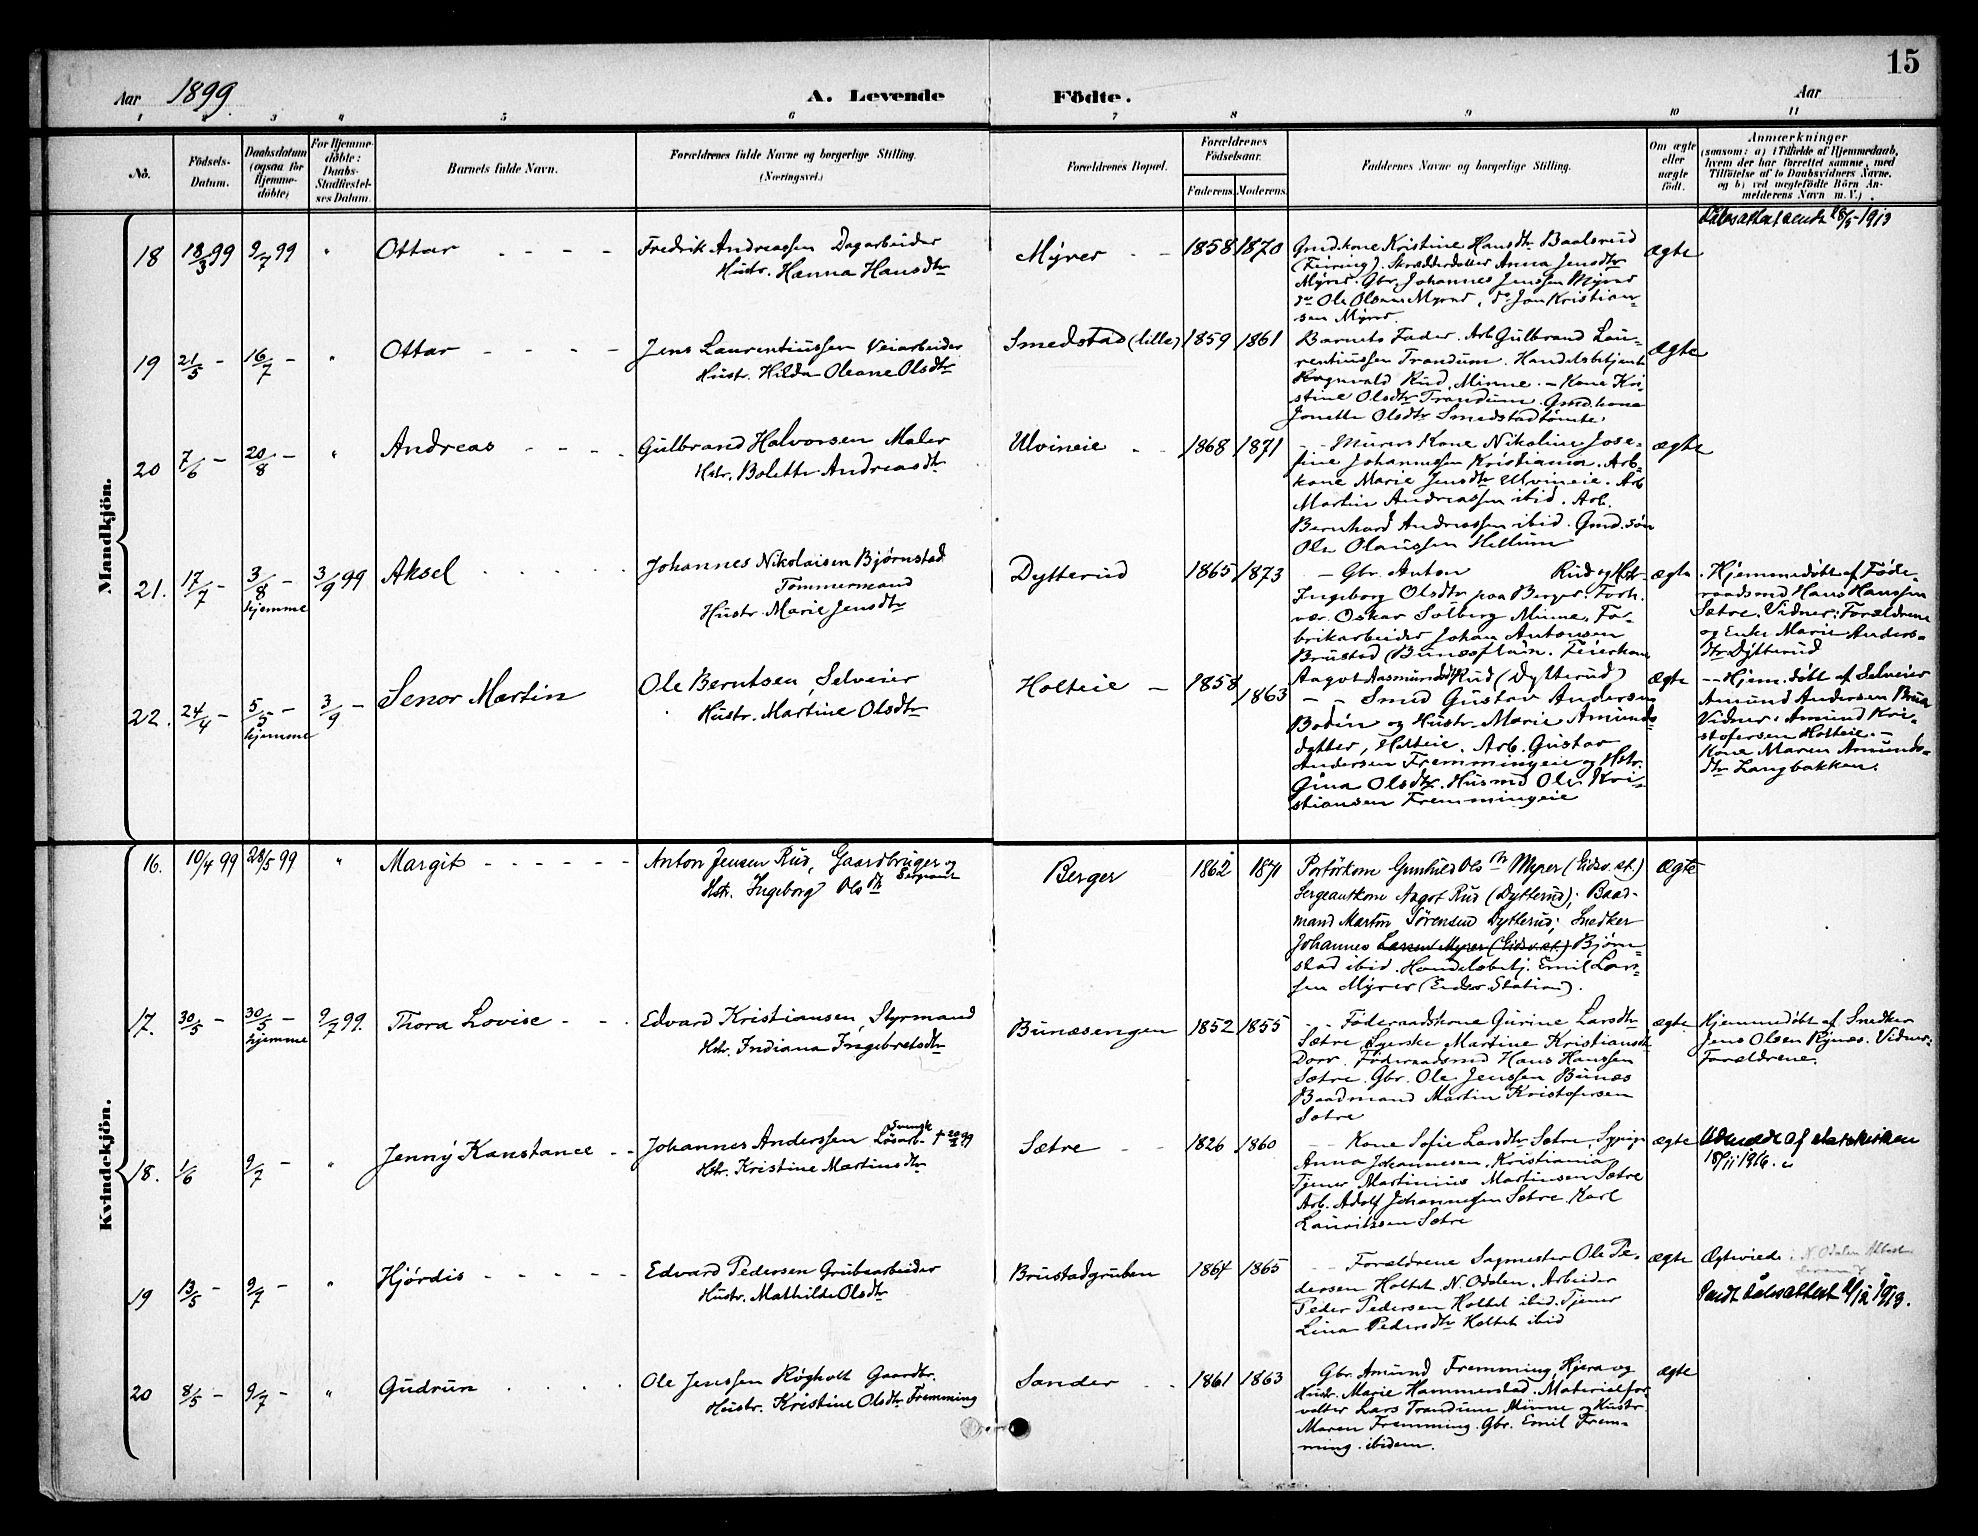 15
Aar 1899. A. Levende Födte. Aar
1 2 3 4 5 6 7 8 9 10 11
No. Födsels-Datum. Daabsdatum (ogsaa for Hjemmedöbte) For Hjemmedöbte: Daabs-Stadfæstelses Datum. Barnets fulde Navn. Forældrenes fulde Navne og borgerlige Stilling. (Næringsvei.) Forældrenes Bopæl. Forældrenes Födselsaar. Faderens. Moderens. Faddernes Navne og borgerlige Stilling. Om ægte eller uægte födt. Anmærkninger (saasom: a) i Tilfælde af Hjemmedaab, hvem der har forrettet samme, med Tilföielse af to Daabsvidners Navne. og b) ved uægtefödte Börn Anmelderens Navn m. V.)
Mandkjön.
18 18/3 99 9/7 99 " Ottar - - - -
Fredrik Andreassen Dagarbeider
Hustr. Hanna Hansdtr
Myrer - - 1858 1870
Gmd.kone Kristine Hansdtr Baalsrud
(Feiring). Skrædderdatter Anna Jensdtr
Myrer. Gbr. Johannes Jenssen Myrer
do Ole Olsen Myrer, do Jon Kristian-
sen Myrer.
ægte
19 21/5 - 16/7 - " Ottar - - - -
Jens Laurentiussen Veiarbeider
Hustr. Hilda Oleane Olsdtr
Smedstad (lille) 1859 1861
Barnets Fader. Arb. Gulbrand Lau-
rentiussen Trandum. Handelsbetjent
Ragnvald Rud, Minne. - Kone Kri-
stine Olsdtr Trandum. Gmd.kone
Jonette Olsdtr Smedstadtomte.
ægte
20 7/6 - 20/8 - " Andreas - - - -
Gulbrand Halvorsen Maler
Hstr. Bolette Andreasdtr
Ulvineie - - 1868 1871
- - Murers Kone Nikoline Jose-
fine Johannessen Kristiania. Arb.
kone Marie Jensdtr Ulvineie. Arb
Martin Andreassen ibid. Arb.
Bernhard Andreassen ibid. Gmd.søn
Ole Olaussen Hellum
ægte
21. 17/7 - 3/8 - hjemme 3/9 99 Aksel
Johannes Nikolaisen Bjørnstad
Tømmermand
Hustr. Marie Jensdtr
Dytterud 1865 1873
- Gbr. Anton Rud og Hstr.
Ingeborg Olsdtr paa Berger. Forh.
vær. Oskar Solberg Minne. Fa-
brikarbeider Johan Antonsen
Brustad (Bunæsflain.
Aagot Aasmundsdtr Rud (Dytterud)
ægte
Hjemmedøbt af Føde-
raadsmd Hans Hanssen
Sætre. Vidner: Forældrene
og Enke Marie Anders-
dtr Dytterud
22. 24/4 - 5/5 - hjemme 3/9 - Senor Martin
Ole Berntsen, Selveier
Hustr. Martine Olsdtr
Holteie - 1858 1863
- - Smed Gustav Andersen
Bodin og Hustr. Marie Amunds-
datter, Holteie. Arb. Gustav
Andersen Fremmingeie og Hstr.
Gina Olsdtr. Husmd Ole Kri-
stiansen Fremmingeie
ægte
- - Hjem.døbt af Selveier
Amund Andersen
Vidner: Amund Kri-
stofersen Holteie. -
Kone Maren Amunds-
dtr Langbakken.
Kvindekjön.
16. 10/4 99 28/5 99 " Margit - - - - - -
Anton Jensen Rud, Gaardbruger og Sergeant
Hstr. Ingeborg Olsdtr
Berger 1862 1871
Portørkone Gunhild Olsdtr Myrer (Eidsv. st.)
Sergeantkone Aagot Rud (Dytterud); Baad-
mand Martin Sørensen Dytterud; Snedker
Johannes Larsen Myrer (Eidsv. st.) Bjørn-
stad ibid. Handelsbetj. Emil Lar-
sen Myrer (Eidsv Station).
ægte
17. 30/5 - 30/5 - hjemme 9/7 99. Thora Lovise - - -
Edvard Kristiansen, Styrmand
Hstr. Indiana Ingebretsdtr
Bunæsengen 1852 1855
- - Føderaadskone Gurine Larsdtr
Sætre. Syerske Martine Kristiansdtr
Dorr. Føderaadsmd Hans Hanssen
Sætre. Gbr. Ole Jenssen Bunæs
Baadmand Martin Kristofersen
Sætre
ægte
Hjemmedøbt af Snedker
Jens Olsen Rynæs. Vidner:
Forældrene.
18. 1/6 9/7 - " Jenny Konstance - -
Johannes Anderssen Svensk Løsarb.
Hstr. Kristine Martinsdtr
Sætre - - 1826 1860
- - Kone Sofie Larsdtr Sætre. Sypige
Anna Johannesen, Kristiania
Tjener Martinius Martinsen Sætre
Arb. Adolf Johannessen Sætre. Karl
Lauritssen Sætre
ægte
Udmeldt af statskirken
18/11 1916.
19 13/5 - 9/7 - " Hjørdis - - - - -
Edvard Pedersen Grubearbeider
Hustr. Mathilde Olsdtr
Brustadgruben 1864 1865
- - Forældrene Sagmester Ole Pe-
dersen Holtet N. Odalen. Arbeider
Peder Pedersen Holtet ibid. Tjener
Lina Pedersdtr Holtet ibid
ægte
Ægteviede: N. Odalen
20 8/5 - 9/7 - " Gudrun
Ole Jenssen Røgholt Gaardbr.
Hustr. Kristine Olsdtr Fremming
Sander - - 1861 1863
Gbr. Amund Fremming, Hjera og
Hustr. Marie Hammerstad. Materialfor-
valter Lars Trandum Minne og Hustr
Maren Fremming. Gbr. Emil Frem-
ming. ibidem.
ægte